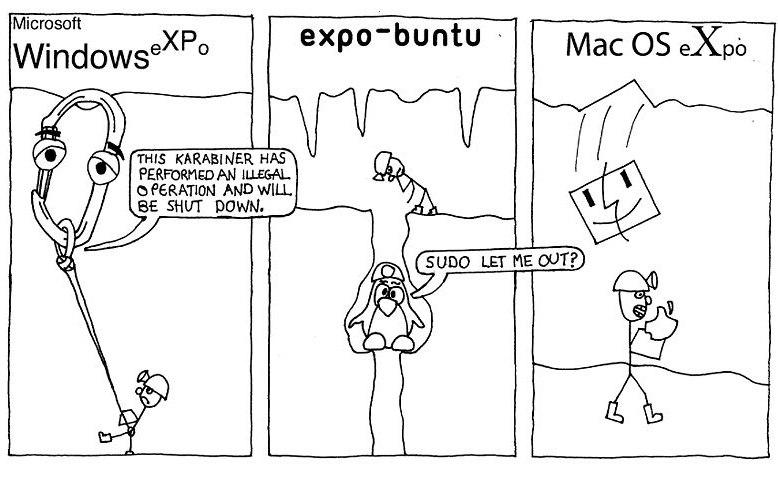 Microsoft
Windows eXPo
THIS KARABINER HAS
PERFORMED AN ILLEGAL
OPERATION AND WILL
BE SHUT DOWN.
expo-buntu
SUDO LET ME OUT?
Mac OS eXpò